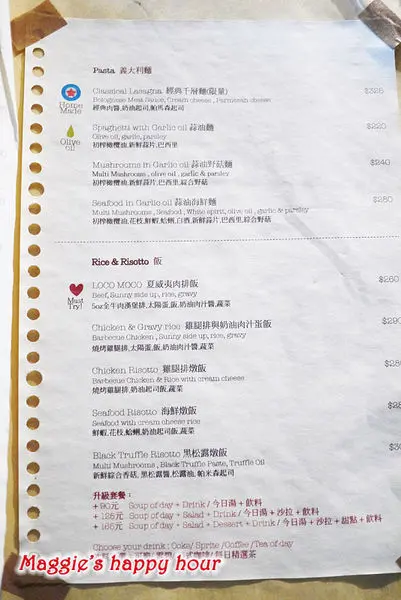 Pasta 義大利麵
Classical Lasagna 經典千層麵(限量) $328
Bolognese Meat Sauce, Cream cheese, Parmesan cheese
經典肉醬,奶油起司,帕馬森起司
Home Made
Spaghetti with Garlic oil 蒜油麵 $220
Olive oil, garlic, parsley
初榨橄欖油,新鮮蒜片,巴西里
Olive oil
Mushrooms in Garlic oil 蒜油野菇麵 $240
Multi Mushrooms, olive oil, garlic & parsley
初榨橄欖油,新鮮蒜片,巴西里,綜合野菇
Seafood in Garlic oil 蒜油海鮮麵 $280
Multi Mushrooms, Seafood, White spirit, olive oil, garlic & parsley
初榨橄欖油,花枝,鮮蝦,蛤蜊,白酒,新鮮蒜片,巴西里,綜合野菇
Rice & Risotto 飯
LOCO MOCO 夏威夷肉排飯 $260
Beef, Sunny side up, rice, gravy
5oz全牛肉漢堡排,太陽蛋,飯,奶油肉汁醬,蔬菜
Must Try!
Chicken & Gravy rice 雞腿排與奶油肉汁蛋飯 $290
Barbecue Chicken, Sunny side up, rice, gravy
燒烤雞腿排,太陽蛋,飯,奶油肉汁醬,蔬菜
Chicken Risotto 雞腿排燉飯
Barbecue Chicken & Rice with cream cheese
燒烤雞腿排,奶油起司飯,蔬菜
Seafood Risotto 海鮮燉飯
Seafood with cream cheese rice
鮮蝦,花枝,蛤蜊,奶油起司飯,蔬菜
Black Truffle Risotto 黑松露燉飯
Multi Mushrooms, Black Truffle Paste, Truffle Oil
新鮮綜合香菇,黑松露醬,松露油,帕米森起司
升級套餐：
+90元 Soup of day + Drink / 今日湯 + 飲料
+128元 Soup of day + Salad + Drink / 今日湯 + 沙拉 + 飲料
+165元 Soup of day + Salad + Dessert + Drink / 今日湯 + 沙拉 + 甜點 + 飲料
Choose your drink : Coke/ Sprite /Coffee /Tea of day
每日精選茶
Maggie's happy hour